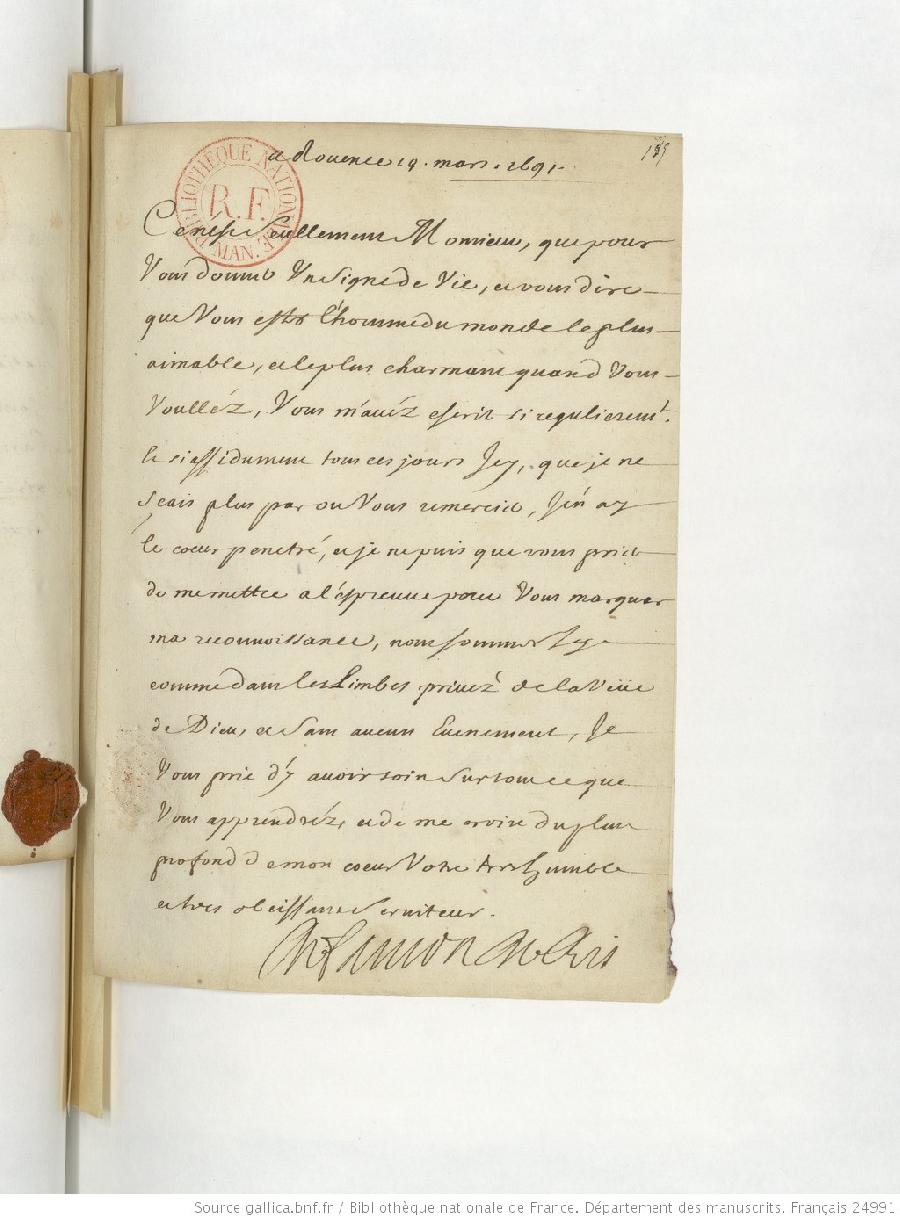 a Rouen ce 19. mars. 1691.
155
BIBLIOTHEQUE NATIONALE
R.F.
MAN.
Ce n'est seullement Monsieur, que pour
Vous donner Un signe de Vie, et vous dire
que Vous estes l'homme du monde le plus
aimable, et le plus charmant quand Vous
Voulléz, Vous m'avéz escrit si regulierem.t
et si assiduement tous ces jours Jcy, que je ne
sçais plus par ou Vous remercier, J'en ay
le coeur penetré, et je ne puis que vous prier
de me mettre a l'épreuve pour Vous marquer
ma reconnoissance, nous sommes Jcy
comme dans les Limbes privéz de la Veüe
de Dieu, et Sans aucun Evenement, Je
Vous prie d'y avoir soin Sur tout ce que
Vous apprendréz, et de me croire du plus
profond de mon coeur Votre tres humble
et tres obeissant Serviteur.
Source gallica.bnf.fr / Bibliothèque nationale de France. Département des manuscrits. Français 24991